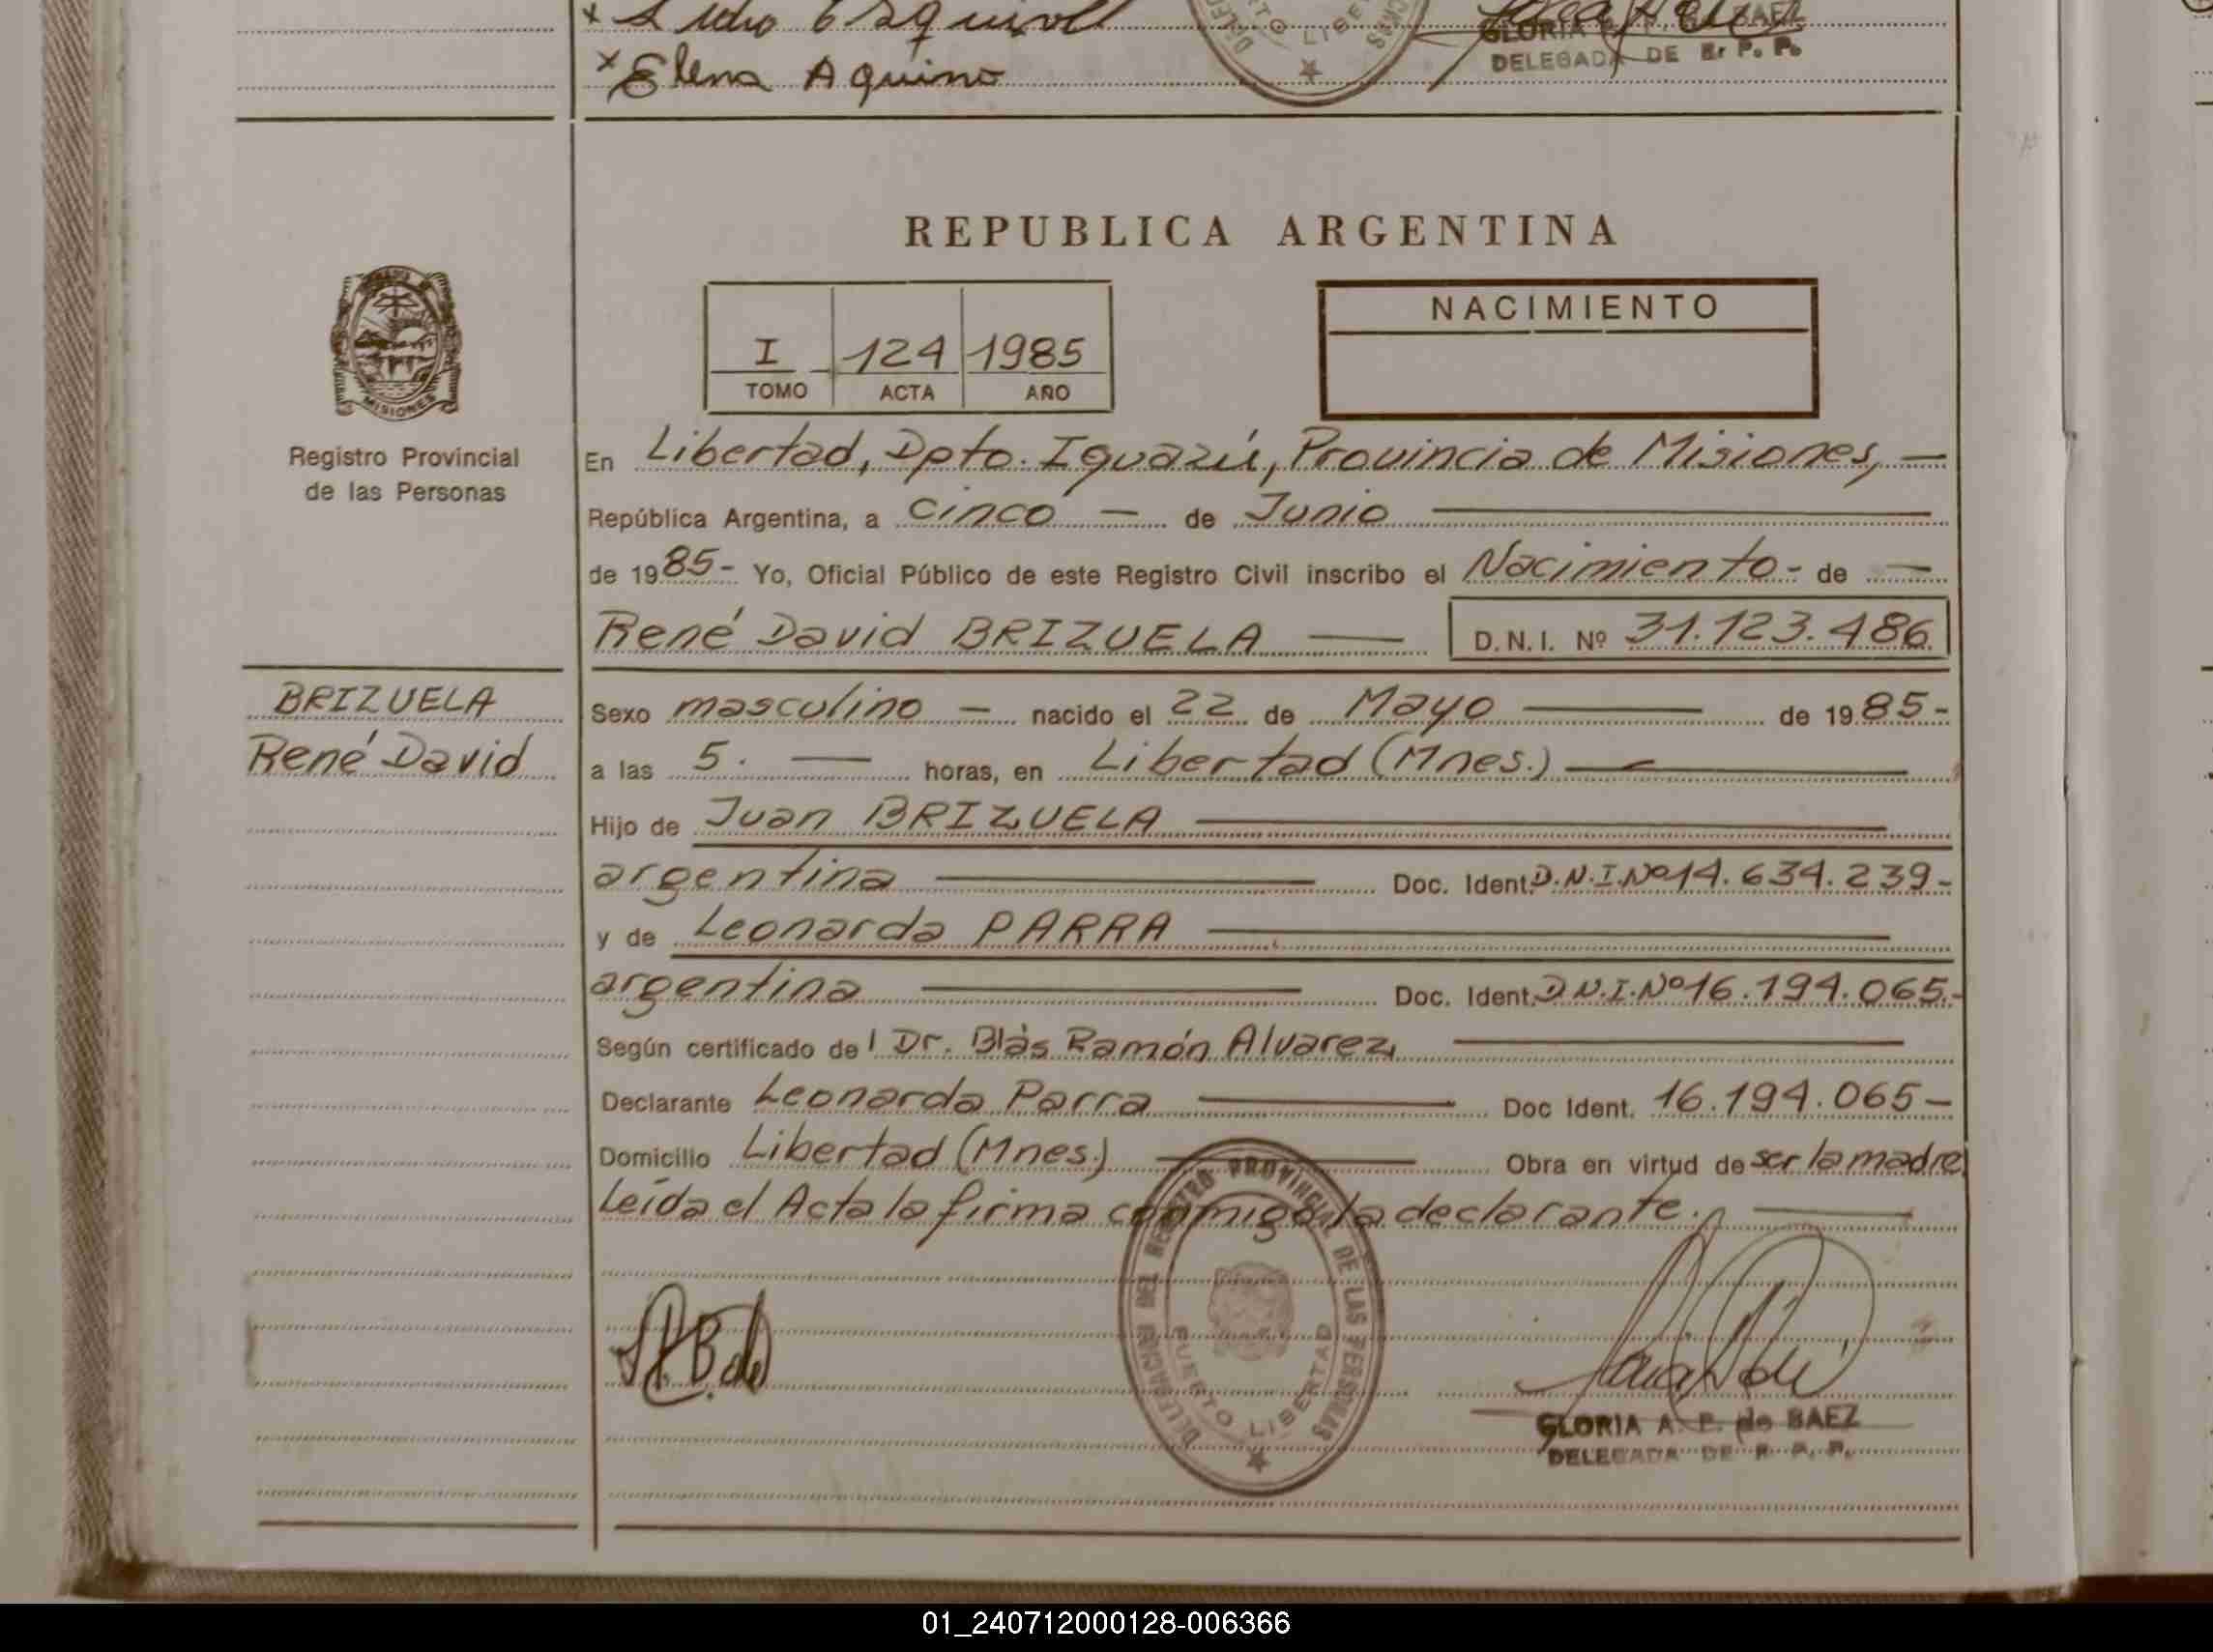 x Lidio Esquivel
x Elena Aquino
GLORIA BAEZ
DELEGADA DE R. P. P.
REPUBLICA ARGENTINA
MISIONES
Registro Provincial
de las Personas
I 124 1985
TOMO ACTA AÑO
NACIMIENTO
En Libertad, Dpto. Iguazú, Provincia de Misiones, —
República Argentina, a cinco — de Junio —
de 1985- Yo, Oficial Público de este Registro Civil inscribo el Nacimiento - de —
René David BRIZUELA — D.N.I. Nº 31.123.486.
BRIZUELA
René David
Sexo masculino — nacido el 22 de Mayo — de 1985-
a las 5. — horas, en Libertad (Mnes.) —
Hijo de Juan BRIZUELA —
argentina — Doc. Ident. D.N.I.Nº14.634.239-
y de Leonarda PARRA —
argentina — Doc. Ident. D.N.I.Nº16.194.065.-
Según certificado del Dr. Blàs Ramón Alvarez, —
Declarante Leonarda Parra — Doc Ident. 16.194.065-
Domicilio Libertad (Mnes.) — Obra en virtud de ser la madre.
Leída el Acta la firma conmigo la declarante. —
DELEGACION DEL REGISTRO PROVINCIAL DE LAS PERSONAS
PUERTO LIBERTAD
GLORIA A. P. de BAEZ
DELEGADA DE R. P. P.
01_240712000128-006366